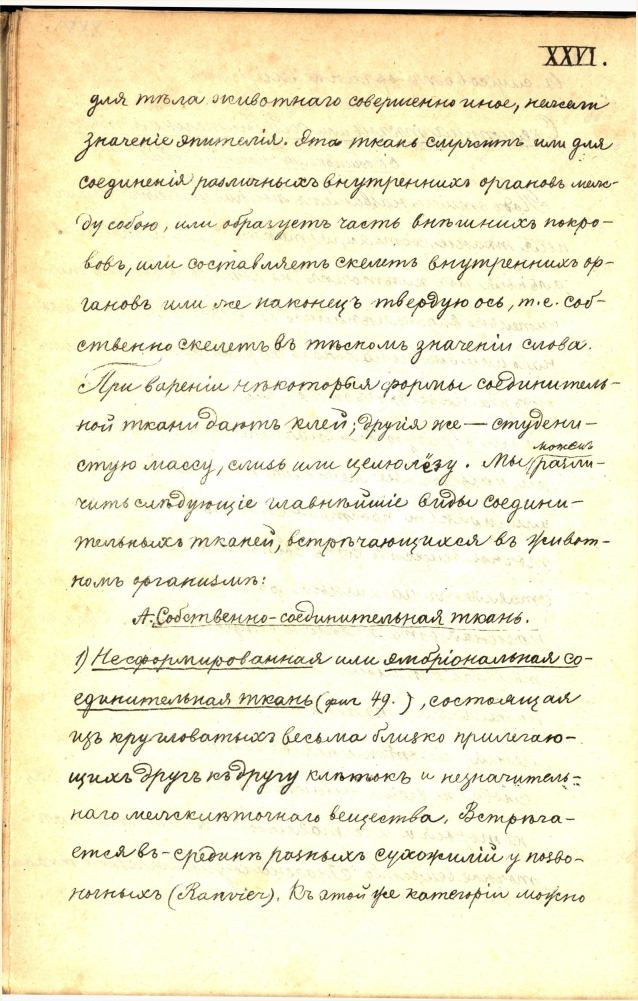 XXVI.
для тѣла животнаго совершенно иное, нежели
значенiе эпителiя. Эта ткань служитъ или для
соединенiя различныхъ внутреннихъ органовъ меж-
ду собою, или образуетъ часть внѣшнихъ покро-
вовъ, или составляетъ скелетъ внутреннихъ ор-
гановъ или же наконецъ твердую ось, т.е. соб-
ственно скелетъ въ тѣсномъ значенiи слова.
При варенiи нѣкоторыя формы соединитель-
ной ткани даютъ клей; другiя же — студени-
стую массу, слизь или целюлёзу. Мы можемъ разли-
чить слѣдующiе главнѣйшiе виды соедини-
тельныхъ тканей, встрѣчающихся въ живот-
номъ организмѣ:
А. Собственно-соединительная ткань.
1) Несформированная или эмбрiональная со-
единительная ткань (фиг 49.), состоящая
изъ кругловатыхъ весьма близко прилегаю-
щихъ другъ къ другу клѣтокъ и незначитель-
наго межклѣточнаго вещества. Встрѣча-
ется въ срединѣ разныхъ сухожилiй у позво-
ночныхъ (Ranvier). Къ этой же категорiи можно